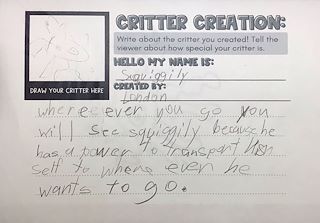 CRITTER CREATION:
Write about the critter you created! Tell the
viewer about how special your critter is.
HELLO MY NAME IS:
Squiggily
CREATED BY:
London
DRAW YOUR CRITTER HERE
whereever you go you
will see squiggily because he
has a power to transport him
self to where ever he
wants to go.